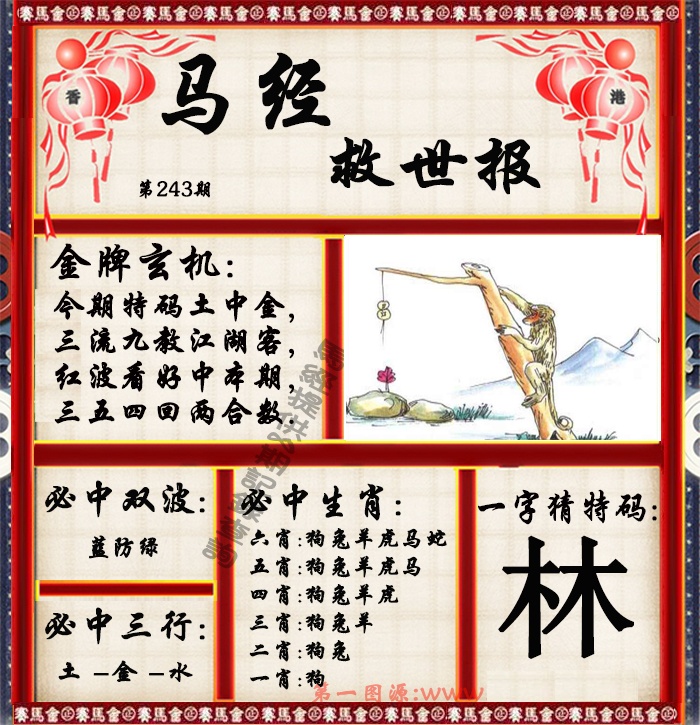 賽馬會㊣賽馬會㊣賽馬會㊣賽馬會㊣賽馬會㊣賽馬會㊣賽馬會㊣賽馬會
香
港
马经
救世报
第243期
金牌玄机:
今期特码土中金,
三流九教江湖客,
红波看好中本期,
三五四回两合数.
必中双波:
蓝防绿
必中三行:
土-金-水
必中生肖:
六肖:狗兔羊虎马蛇
五肖:狗兔羊虎马
四肖:狗兔羊虎
三肖:狗兔羊
二肖:狗兔
一肖:狗
一字猜特码:
林
第一图源:www